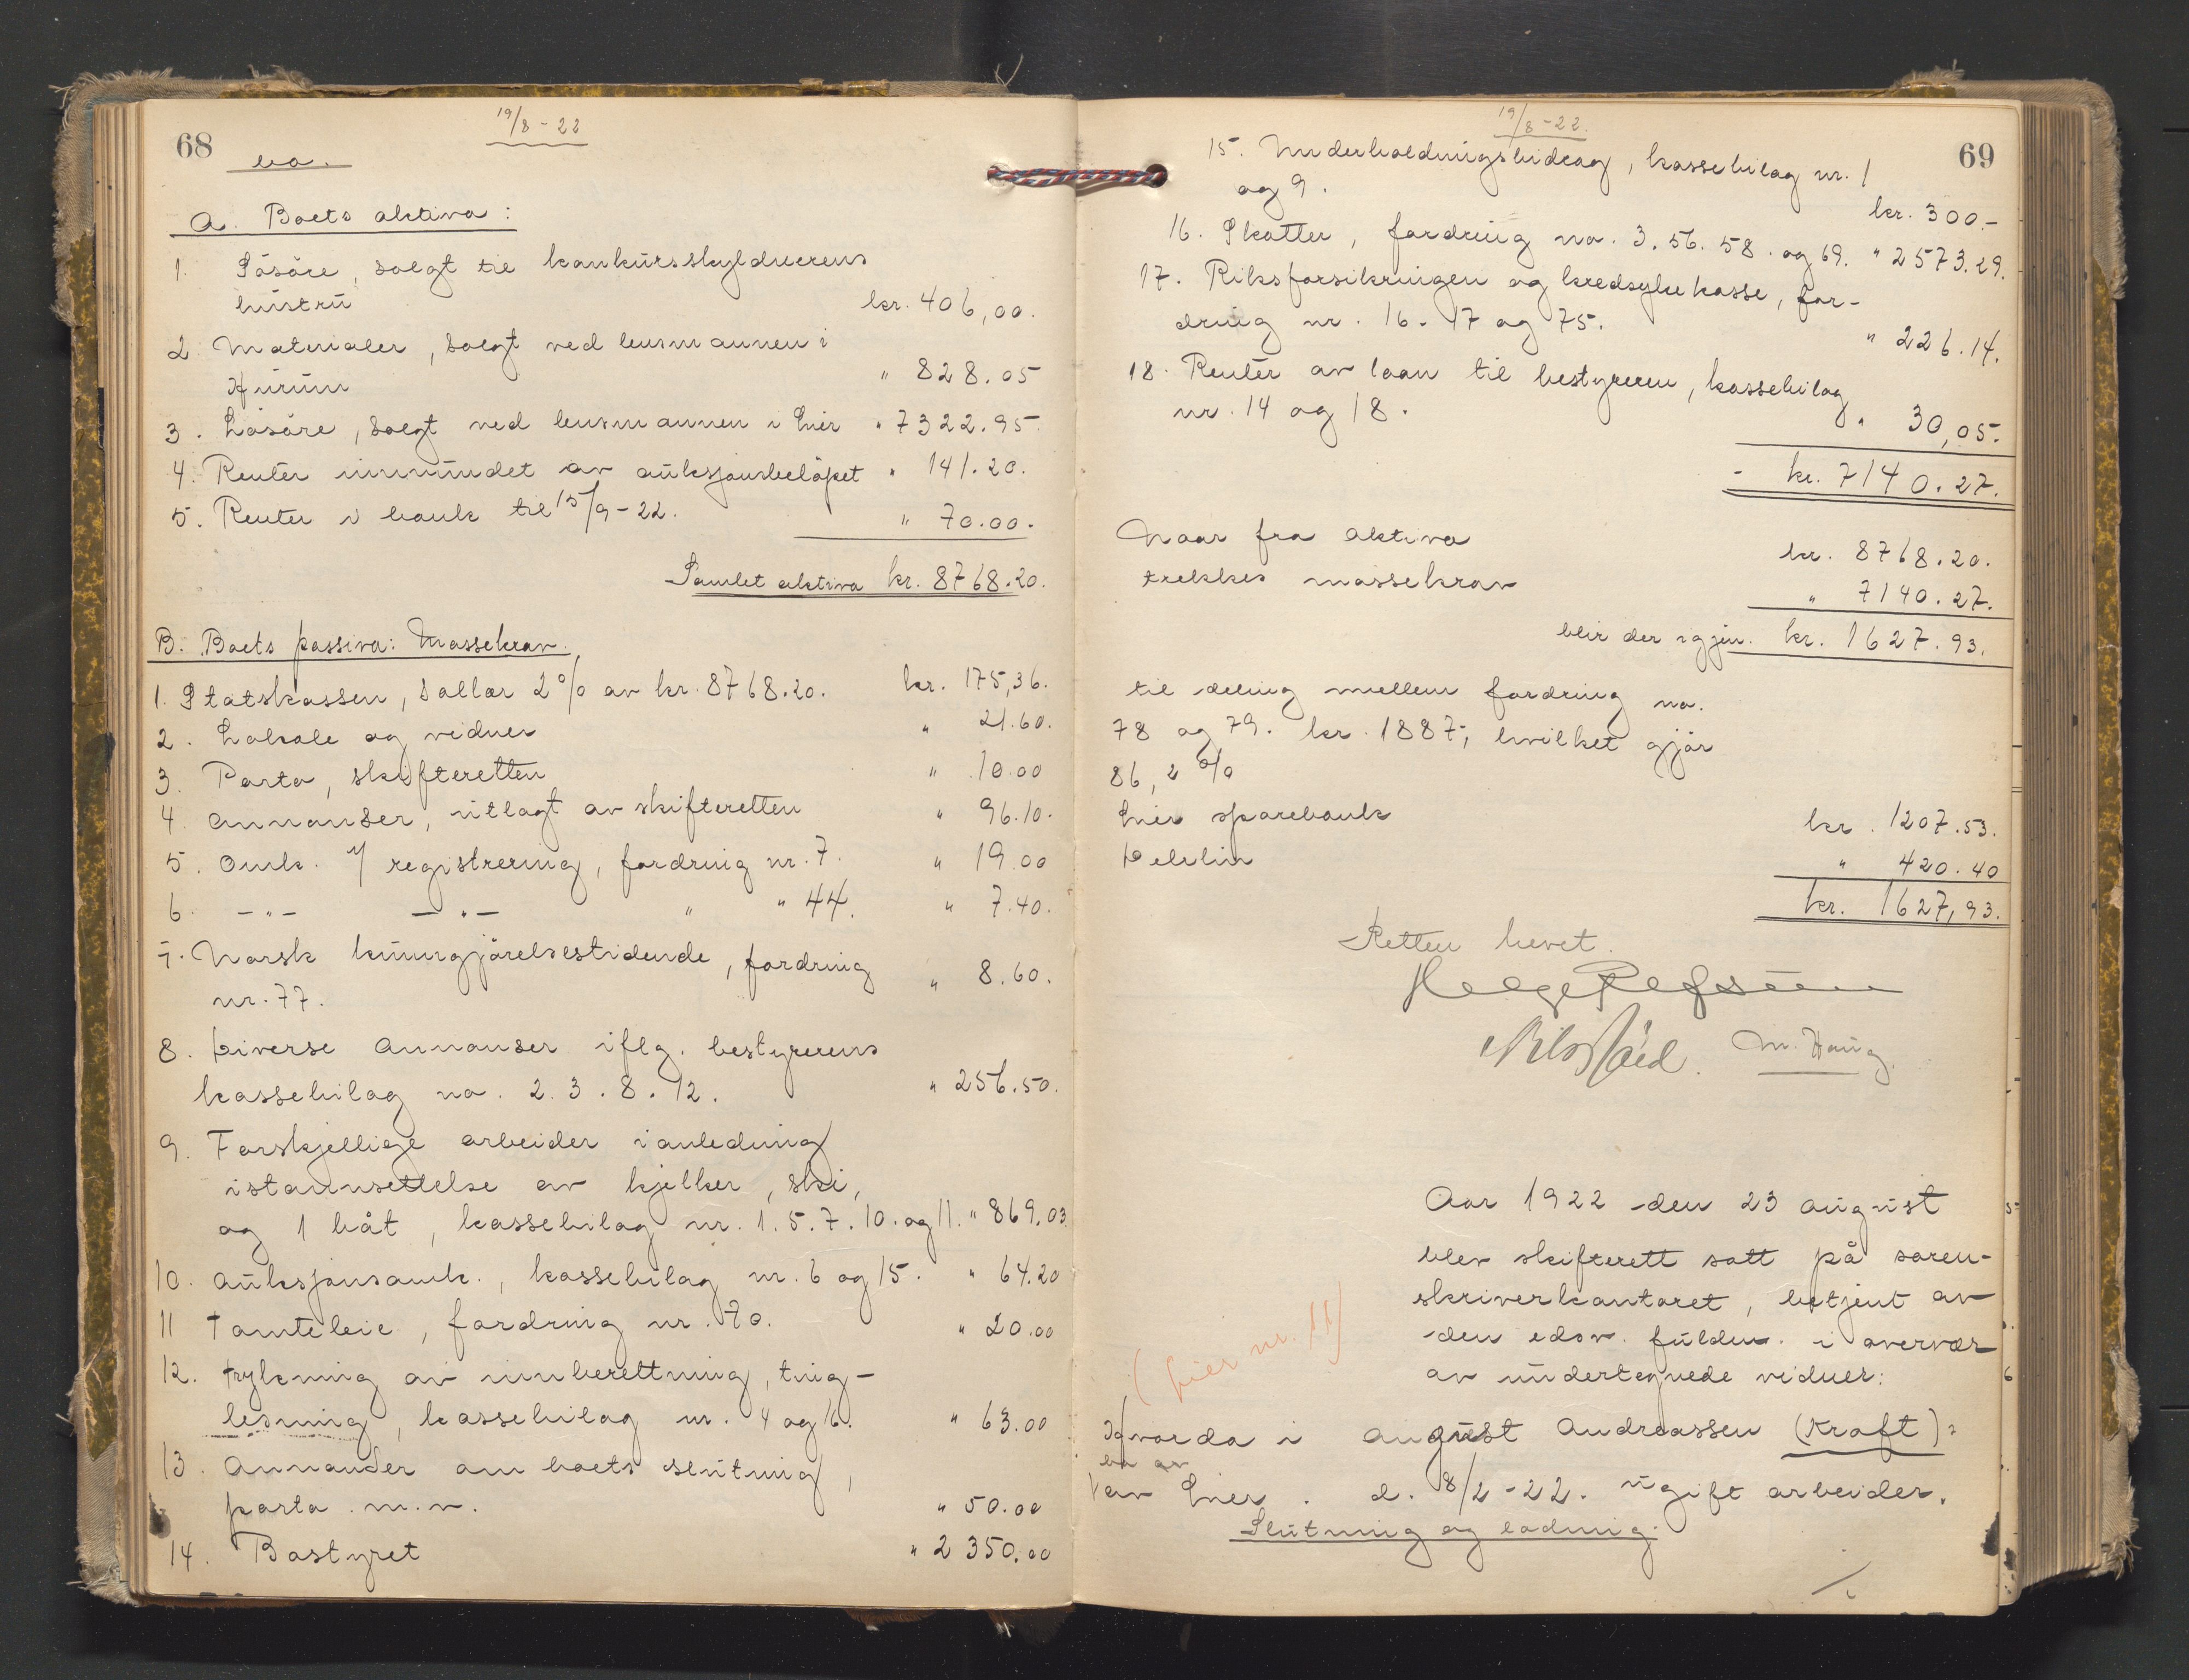 68
19/8-22
bo.
A. Boets aktiva:
1. Løsøre, solgt til konkursskyldnerens
hustru kr. 406,00.
2. Materialer, solgt ved lensmannen i
Hurum " 828.05
3. Løsøre, solgt ved lensmannen i Lier " 7322.95.
4. Renter innvundet av auksjonsbeløpet " 141.20.
5. Renter i bank til 15/9-22. " 70.00.
Samlet aktiva kr. 8768.20.
B. Boets passiva: Massekrav.
1. Statskassen, sallær 2% av kr. 8768.20. kr. 175,36.
2. Lokale og vidner " 21.60.
3. Porto, skifteretten " 10.00
4. Annonser, utlagt av skifteretten " 96.10.
5. Omk. v/ registrering, fordring nr. 7. " 19.00
6. -"- -"- " " 44. " 7.40.
7. Norsk kunngjørelsestidende, fordring
nr. 77. " 8.60.
8. Diverse annonser iflg. bestyrerens
kassebilag no. 2. 3. 8. 12. " 256.50.
9. Forskjellige arbeider i anledning
istannsettelse av kjelker, ski,
og 1 båt, kassebilag nr. 1. 5. 7. 10. og 11. " 869.03.
10. Auksjonsomk., kassebilag nr. 6 og 15. " 64.20
11 Tomteleie, fordring nr. 70. " 20.00
12. Trykning av innberettning, ting-
lesning, kassebilag nr. 4 og 16. " 63.00
13. Annonser om boets slutning,
porto m.v. " 50.00
14. Bostyret " 2350.00
69
19/8-22.
15. Underholdningsbidrag, kassebilag nr. 1
og 9. kr. 300.-
16. Skatter, fordring no. 3. 56. 58. og 69. " 2573.29.
17. Riksforsikringen og kredssykekasse, for-
dring nr. 16. 17 og 75. " 226.14.
18. Renter av laan til bestyreren, kassebilag
nr. 14 og 18. " 30,05.
- kr. 7140.27.
Naar fra aktiva kr. 8768.20.
trekkes massekrav " 7140.27.
blir der igjen kr. 1627.93.
til deling mellem fordring no.
78 og 79. kr. 1887,- hvilket gjør
86,2 %
Lier sparebank kr. 1207.53.
" 420.40
kr. 1627,93.
Retten hevet.
Helge Refsum
M. Haug
Aar 1922 den 23 august
blev skifterett satt på soren-
skriverkontoret, betjent av
den edsv. fuldm. i overvær
av undertegnede vidner:
(Lier nr. 11)
Hvorda i August Andreassen (Kraft)s
bo av
Lier. d. 8/2-22. ugift arbeider.
Slutning og lodning.